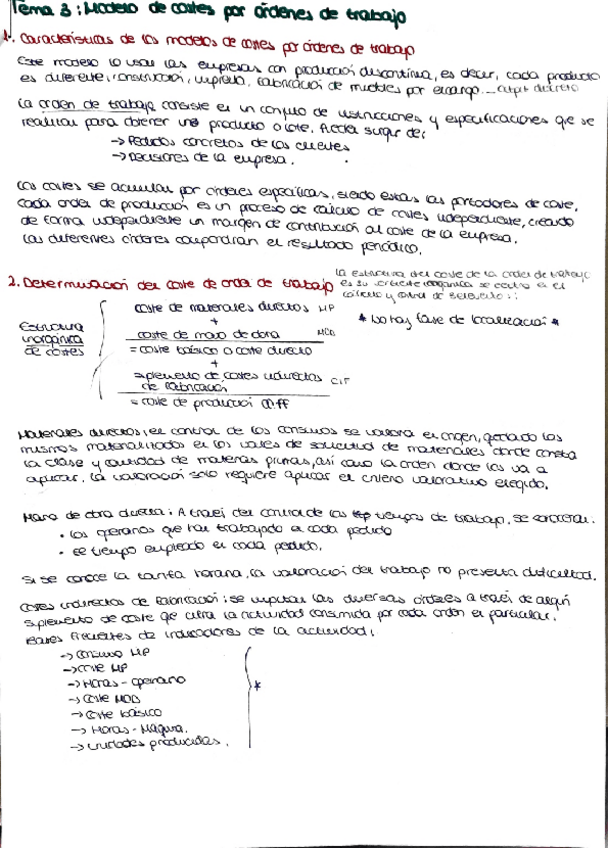 Tema 3: Modelo de costes por órdenes de trabajo
1. Características de los modelos de costes por órdenes de trabajo
Este modelo lo usan las empresas con producción discontinua, es decir, cada producto
es diferente, construcción, imprenta, fabricación de muebles por encargo... output discreto
La orden de trabajo consiste en un conjunto de instrucciones y especificaciones que se
realizan para obtener un producto o lote. Puede surgir de:
→ Pedidos concretos de los clientes
→ Decisiones de la empresa.
Los costes se acumulan por órdenes específicas, siendo estas las portadores de coste.
Cada orden de producción es un proceso de cálculo de costes independiente, creando
de forma independiente un margen de contribución al coste de la empresa.
Las diferentes órdenes compondrán el resultado periódico.
2. Determinación del coste de orden de trabajo
La estructura del coste de la orden de trabajo
es su vertiente inorgánica se centra en el
cálculo y control de
Estructura
inorgánica
de costes
coste de materiales directos MP
+
coste de mano de obra MOD
= coste básico o coste directo
+
suplemento de costes indirectos
de fabricación CIF
= coste de producción
* No hay fase de localización *
Materiales directos: el control de los consumos se valora en origen, quedando los
mismos materializados en los vales de solicitud de materiales donde consta
la clase y cantidad de materias primas, así como la orden donde los va a
aplicar. La valoración solo requiere aplicar el criterio valorativo elegido.
Mano de obra directa: A través del control de los tiempos de trabajo, se conocerán:
• Los operarios que han trabajado en cada pedido
• El tiempo empleado en cada pedido.
Si se conoce la tarifa horaria, la valoración del trabajo no presenta dificultad.
Costes indirectos de fabricación: se imputan las diversas órdenes a través de algún
suplemento de coste que cifra la actividad consumida por cada orden en particular.
Bases frecuentes de indicadores de la actividad:
→ Consumo MP
→ Coste MP
→ Horas - operario
→ Coste MOD
→ Coste básico *
→ Horas - Máquina.
→ Unidades producidas.